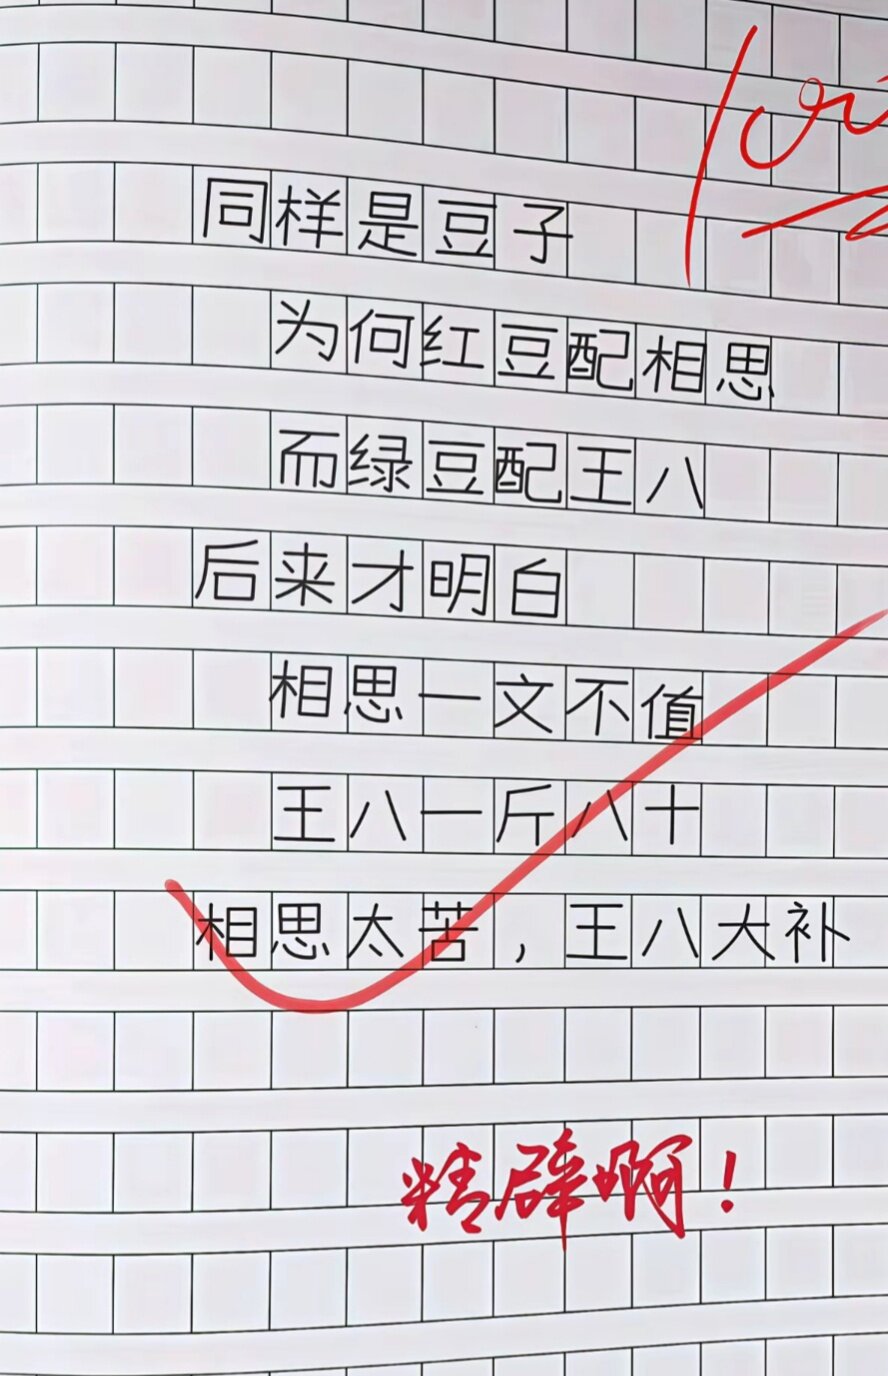 同样是豆子
为何红豆配相思
而绿豆配王八
后来才明白
相思一文不值
王八一斤八十
相思太苦，王八大补
精辟啊！